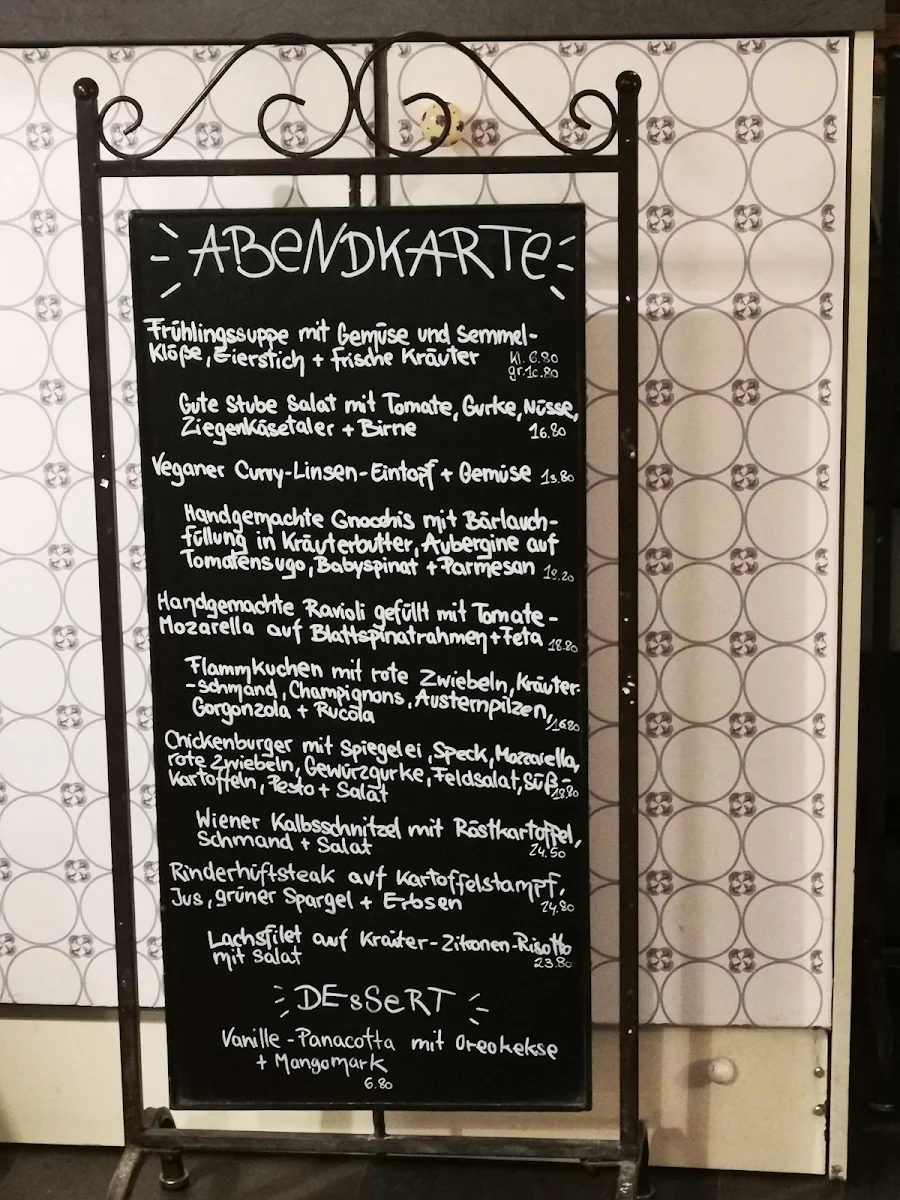 ABENDKARTE
Frühlingssuppe mit Gemüse und Semmel-
Klöße, Eierstich + frische Kräuter kl. 6.80
gr. 10.80
Gute Stube Salat mit Tomate, Gurke, Nüsse,
Ziegenkäsetaler + Birne 16.80
Veganer Curry-Linsen-Eintopf + Gemüse 13.80
Handgemachte Gnocchis mit Bärlauch-
füllung in Kräuterbutter, Aubergine auf
Tomatensugo, Babyspinat + Parmesan
Handgemachte Ravioli gefüllt mit Tomate-
Mozarella auf Blattspinatrahmen + Feta 18.80
Flammkuchen mit rote Zwiebeln, Kräuter-
-schmand, Champignons, Austernpilzen,
Gorgonzola + Rucola 16.80
Chickenburger mit Spiegelei, Speck, Mozzarella,
rote Zwiebeln, Gewürzgurke, Feldsalat, Süß-
Kartoffeln, Pesto + Salat 18.80
Wiener Kalbsschnitzel mit Röstkartoffel,
Schmand + Salat 24.50
Rinderhüftsteak auf Kartoffelstampf,
Jus, grüner Spargel + Erbsen 24.80
Lachsfilet auf Kräuter-Zitronen-Risotto
mit Salat 23.80
DESSERT
Vanille-Panacotta mit Oreokekse
+ Mangomark
6.80